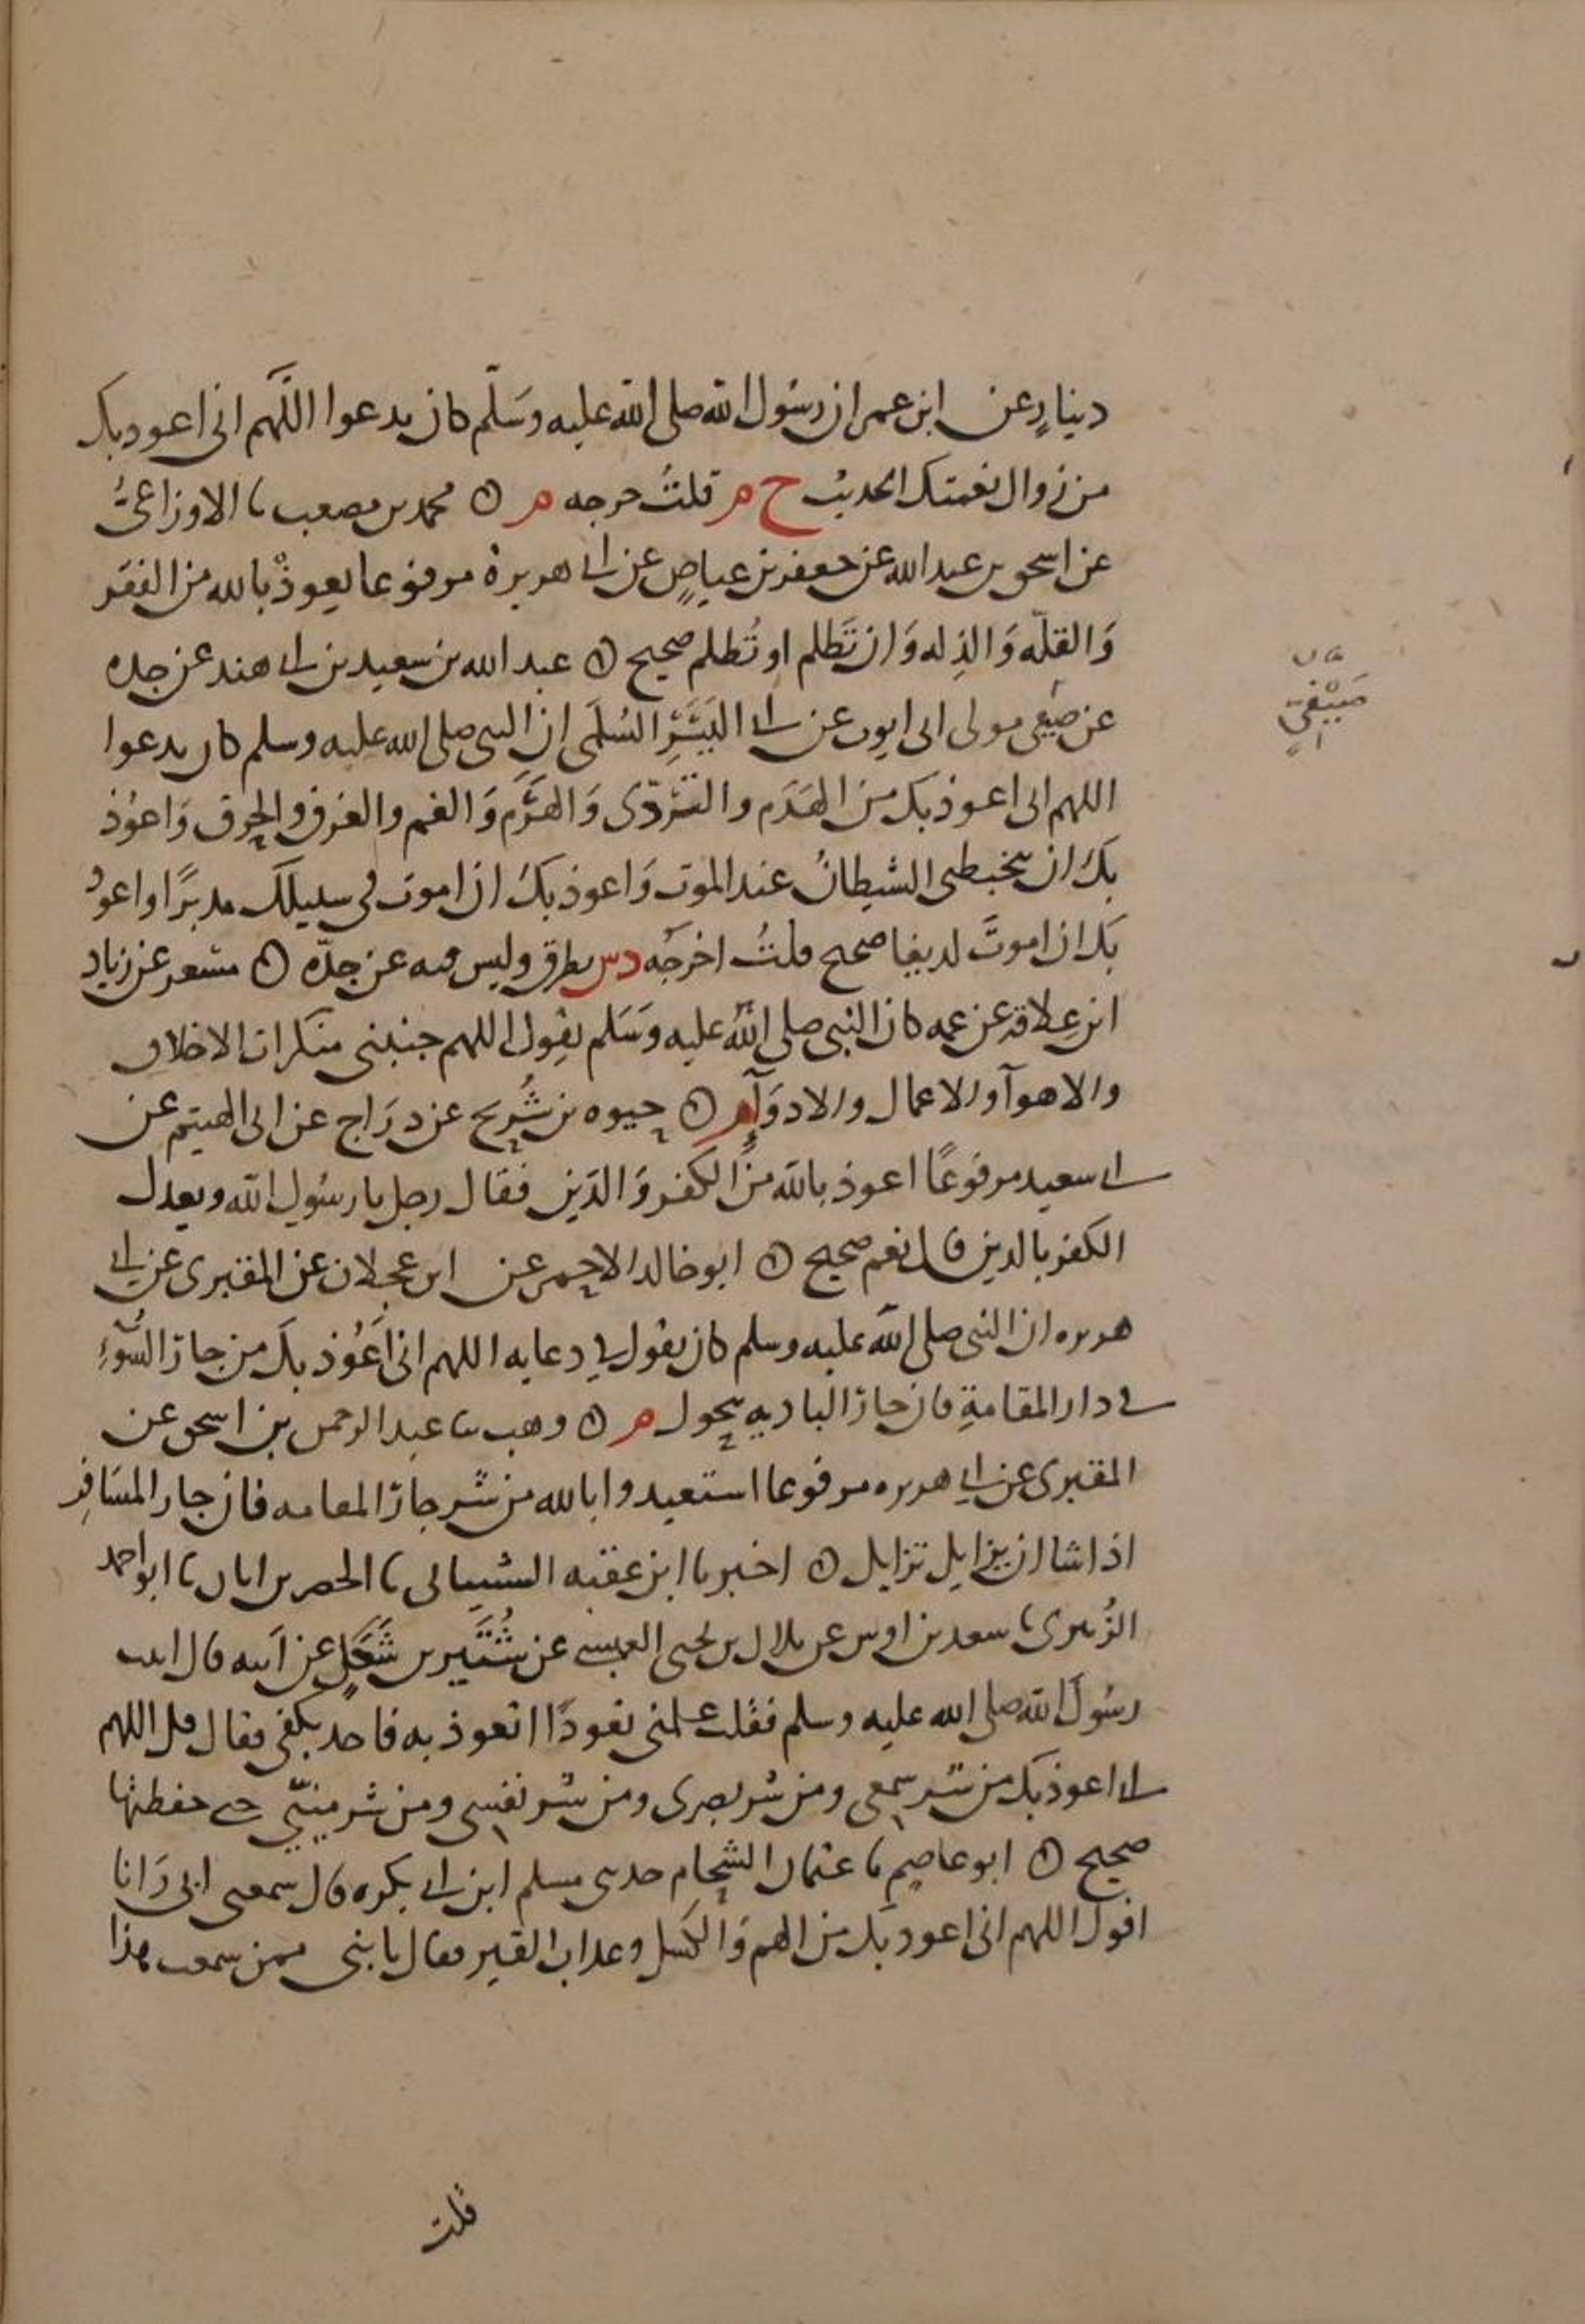 دينارٍ عن ابن عمر ان رسُول الله صلى الله عليه وسَلّم كان يدعوا اللَّهم انى اعوذ بك
من زوال نعمتك الحديث خ م قلتُ خرجه م ۞ محمد بن مصعب نا الاوزاعىُّ
عن اسحق بن عبد الله عن جعفر بن عياضٍ عن ابى هريرة مرفوعا تعوذْ بالله من الفقر
وَالقلّه وَالذِله وَان تَظلم او تُظلم صحيح ۞ عبد الله بن سعيد بن ابى هند عن جده
صَيْفِيّ
عن صيفى مولى ابى ايوب عن ابى اليَسَرِ السُلَمى ان النبى صلى الله عليه وسلم كان يدعوا
اللهم انى اعوذ بك من الهَدَم والتَرَدّى وَالهَرَم وَالغم والغرق والحرق وَاعوُذ
بكَ ان يتخبطنى الشيطانُ عند الموت وَاعوذ بكَ ان اموت فى سبيلك مدبرًا واعوذُ
بكَ ان اموتَ لديغا صحيح قلتُ اخرجَه د س بطرق وليس فيه عن جدّه ۞ مسْعر عن زياد
ابن عِلاقة عن عمه كان النبى صلى اللهُ عليه وسَلم يقول اللهم جنبنى منكرات الاخلاق
والاهوآ والاعمال والادوَآءِ م ۞ حيوه بن شُرَيح عن درَاج عن ابى الهيثم عن
ابى سعيد مرفوعًا اعوذ بالله منَ الكفر وَالدَين فقال رجل يا رسُول الله ويعدل
الكفر بالدين قال نعم صحيح ۞ ابو خالد الاحمر عن ابن عجلان عن المقبرى عن ابى
هريره ان النبى صلى الله عليه وسلم كان يقول فى دعايه اللهم انى اَعُوْذ بكَ من جارَ السُّوْءِ
فى دار المقامةِ فان جارَ الباديه يتحول م ۞ وهب نا عبد الرحمن بن اسحق عن
المقبرى عن ابى هريره مرفوعا استعيدوا بالله من شر جارَ المقامه فان جار المسَافِر
اذا شا ان يزايل تزايل ۞ اخبرنا ابن عقبه الشيبانى نا الخضر بن ابان نا ابو احمد
الزُبيرى نا سعد بن اوس عن بلال بن يحيى العبسى عن شُتَيْر بن شَكَلٍ عن اَبيه قال اتيت
رسُولَ الله صلى الله عليه وسلم فقلت علمنى تعوذًا اتعوذ به فاخذ بكفى فقال قل اللهم
انى اعوذ بك من شر سمعى ومن شر بصرى ومن شر نفسى ومن شر منيّى حتى حفظتها
صحيح ۞ ابو عاصم نا عثمان الشحام حدثنى مسلم ابن ابى بكره قال سمعنى ابى وَانا
اقول اللهم انى اعوذ بكَ من الهم وَالكَسَل وعذاب القبر فقال يا بنى ممن سمعت هذا
قلت